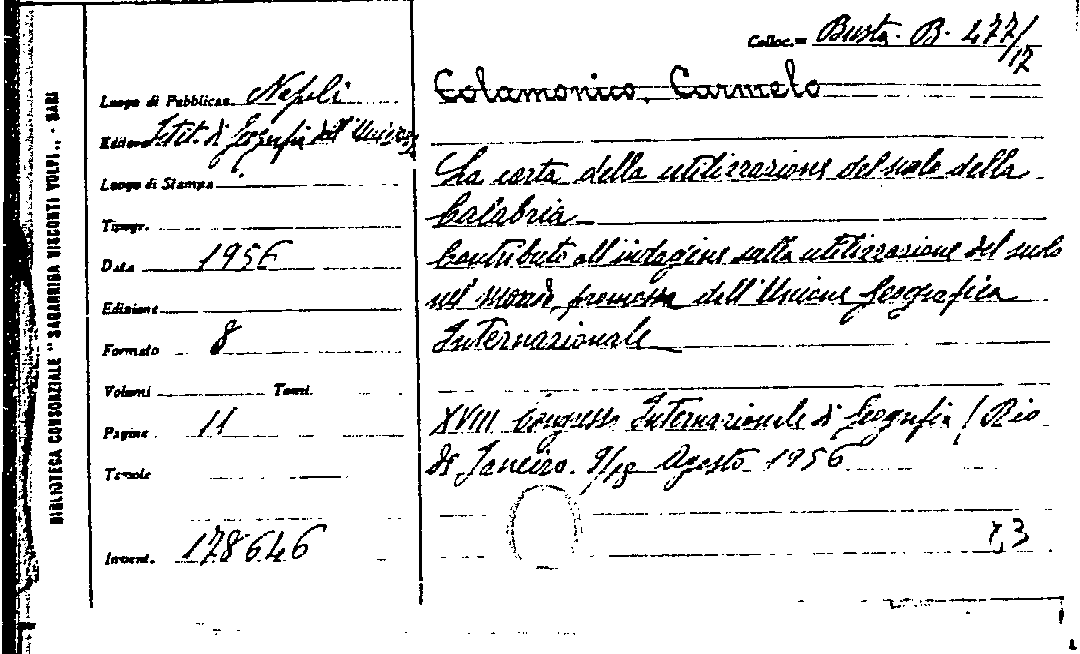 BIBLIOTECA CONSORZIALE "SAGARRIGA VISCONTI VOLPI" - BARI
Colloc.= Busta. B. 477/17
Luogo di Pubblicaz. Napoli
Editore Istit. di Geografia dell'Univers.
Luogo di Stampa
Tipogr.
Data 1956
Edizione
Formato 8
Volumi Tomi.
Pagine 11
Tavole
Invent. 178646
Colamonico, Carmelo
La carta della utilizzazione del suolo della
Calabria
Contributo all'indagine sulla utilizzazione del suolo
nel Mondo, promossa dell'Unione Geografica
Internazionale
XVIII Congresso Internazionale di Geografia / Rio
de Janeiro. 9/18 Agosto 1956